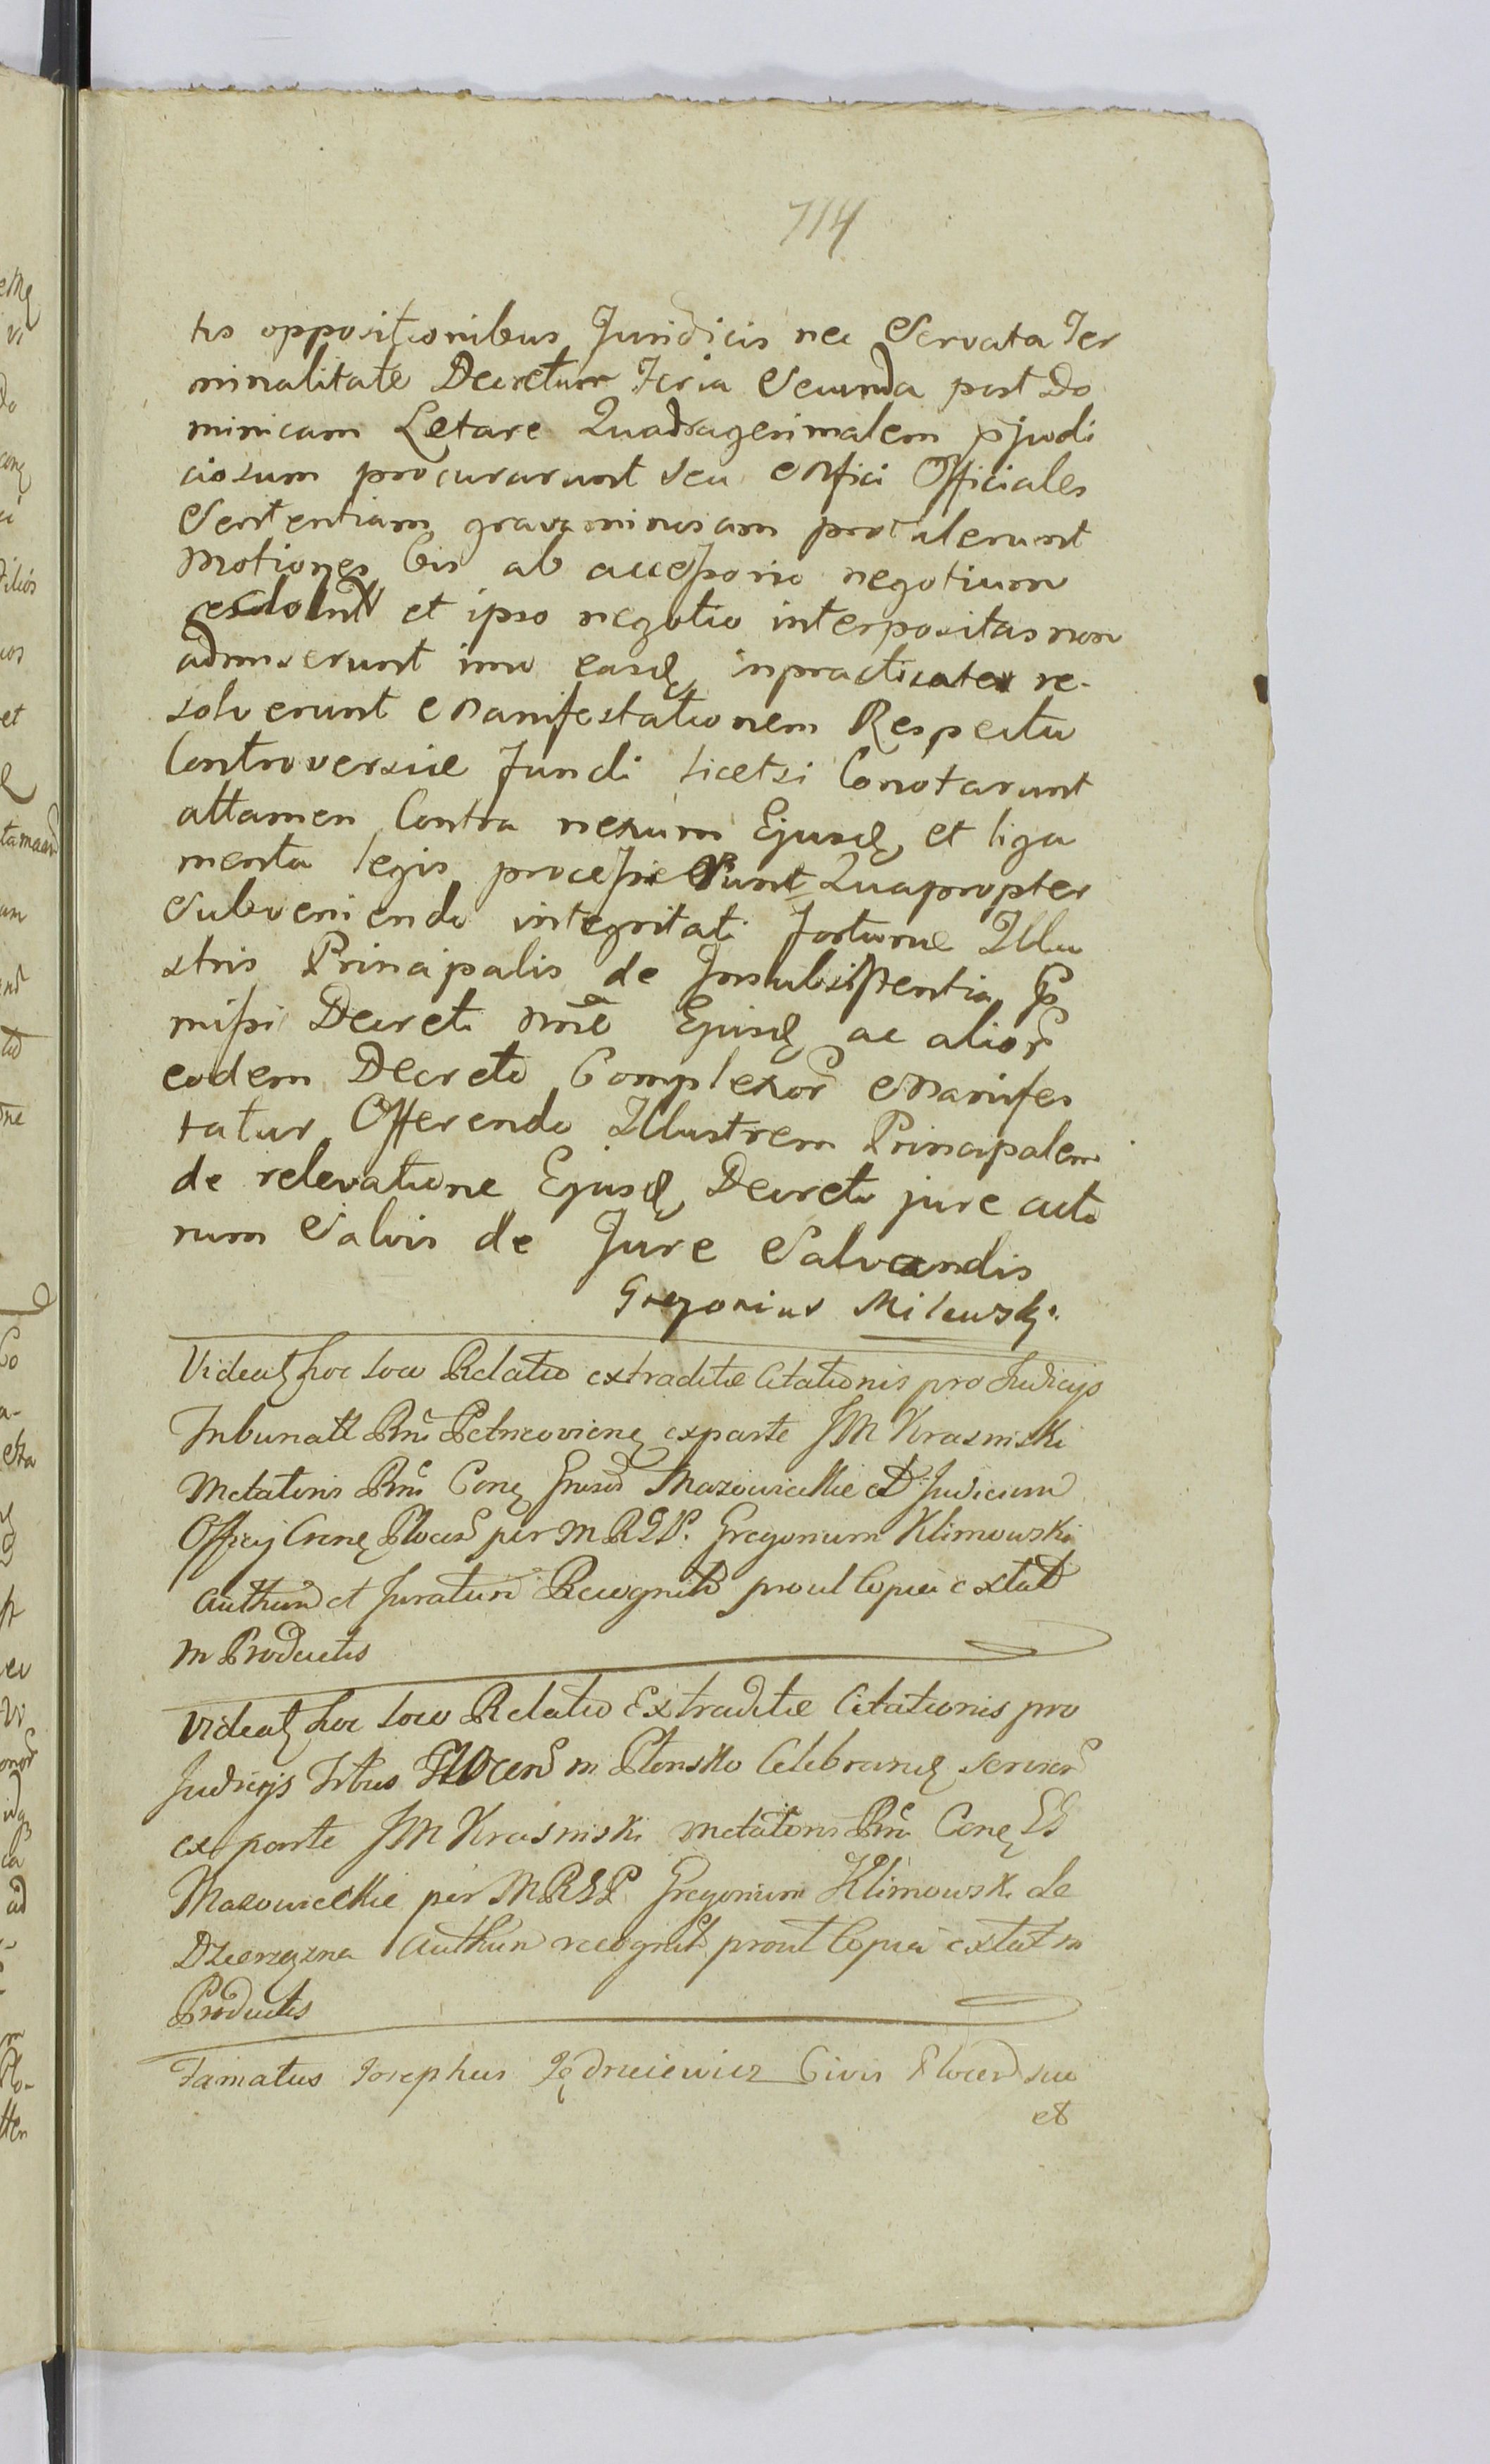 714
tis oppositionibus Juridicis nec Servata Ter
minalitate Decretum Feria Secunda post Do
minicam Letare Quadragesimalem pjudi
ciosum procurarunt seu Mfici Officiales
Sententiam gravaminosam protulerunt
Motiones bis ab accessorio negotium
et ipso negotio interpositas non
admiserunt imo easq inpracticatas re-
solverunt Manifestationem Respectu
Controversiæ fundi licetsi Conotarunt
attamen Contra nexum Ejusd et liga
menta legis processie Sunt Quapropter
Subveniendo integritati fortunæ Illu
stris Principalis de Insubsistentia P
missi Decreti nmē Ejusd ac alior
eodem Decreto Complexor Manifes
tatur Offerendo Illustrem Principalem
de relevatione Ejusd Decreti jure acto
rum Salvis de Jure Salvandis
Gregorius Milewski
Videat hoc loco Relatio extraditæ Citationis pro Judicijs
Tribunall Rni Petricovien exparte JM Krasniski
Metatoris Rni Mazowieckie et Judicium
Officij Plocen per MRGP. Gregorium Klimowski
authen et Juratum Recognita prout Copia extat
in Productis
Videat hoc loco Relatio Extraditæ Citationis pro
Judicijs Plocen in Plonsko Celebran
ex parte JM Krasniski Metatoris Rni
Mazowieckie per MRGP Gregorium Klimowski de
authen recognita prout Copia extat in
Productis
Famatus Josephus Jędrzeiewicz Civis Plocen suo
et